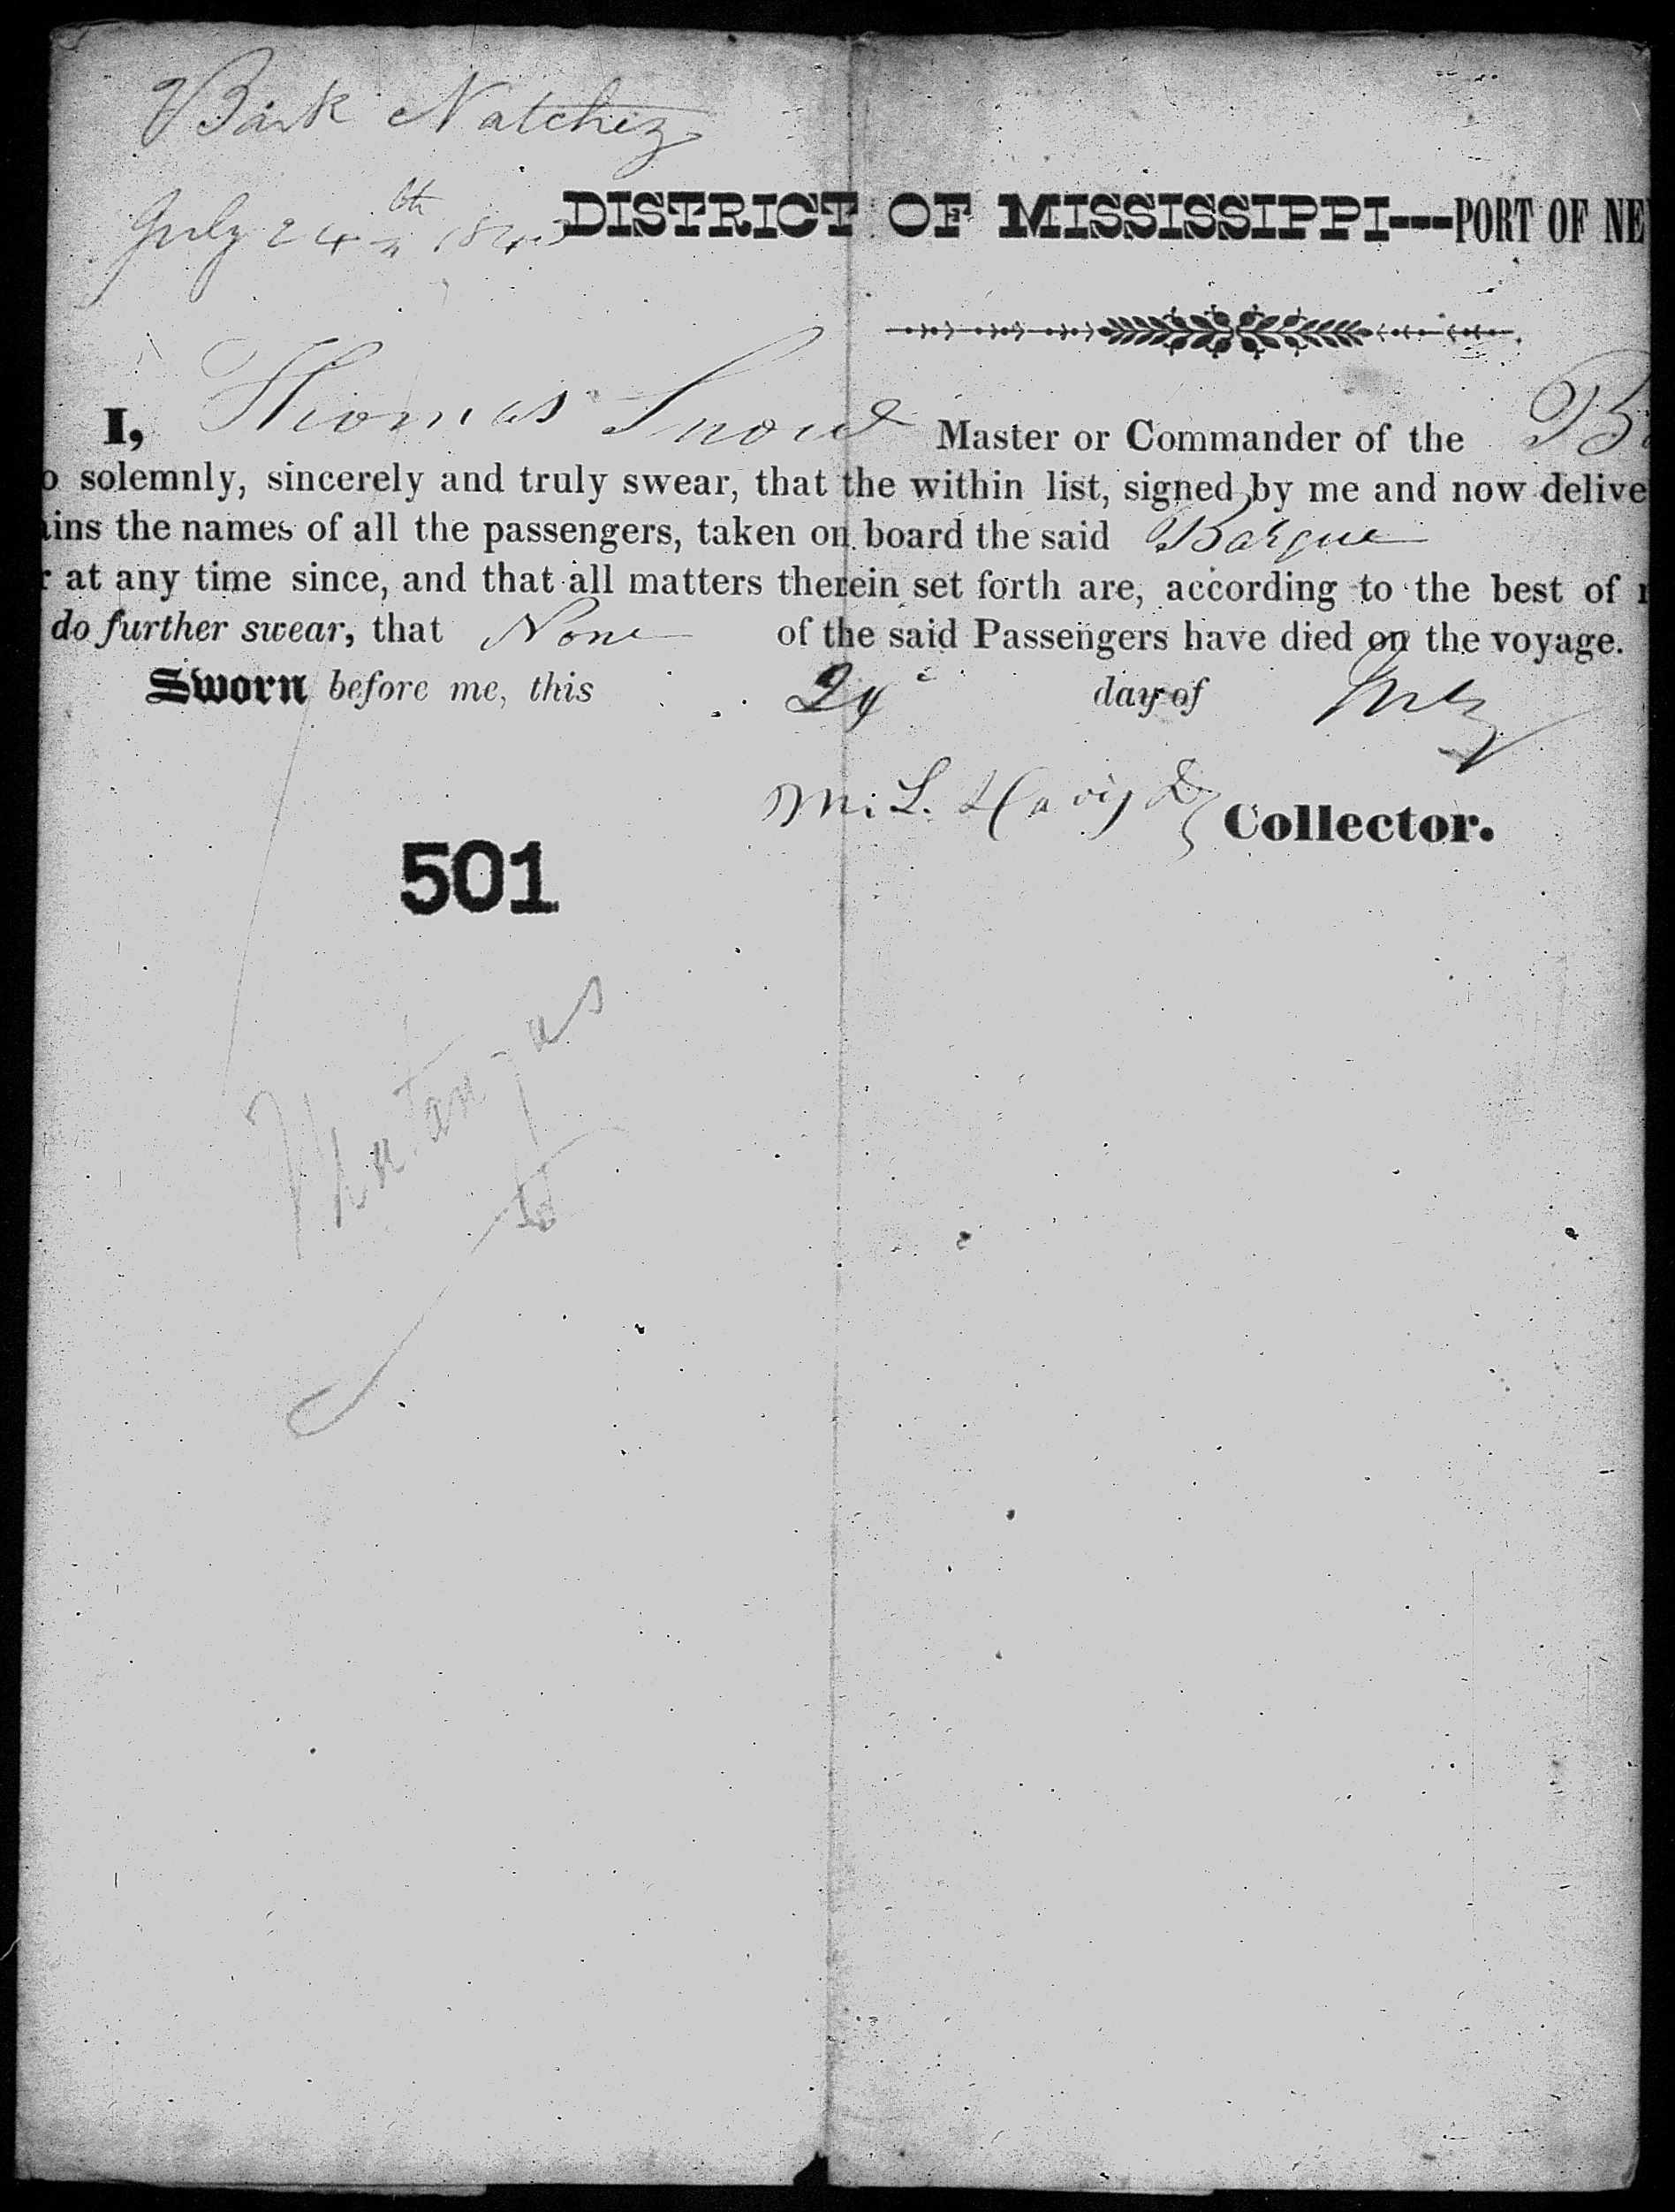 Bark Natchez
July 24th 184
DISTRICT OF MISSISSIPPI---PORT OF NE
I, Thomas Snow Master or Commander of the B
o solemnly, sincerely and truly swear, that the within list, signed by me and now delive
ains the names of all the passengers, taken on board the said Barque
r at any time since, and that all matters therein set forth are, according to the best of
do further swear, that None of the said Passengers have died on the voyage.
Sworn before me, this 24 day of July
M. L. Collector.
501